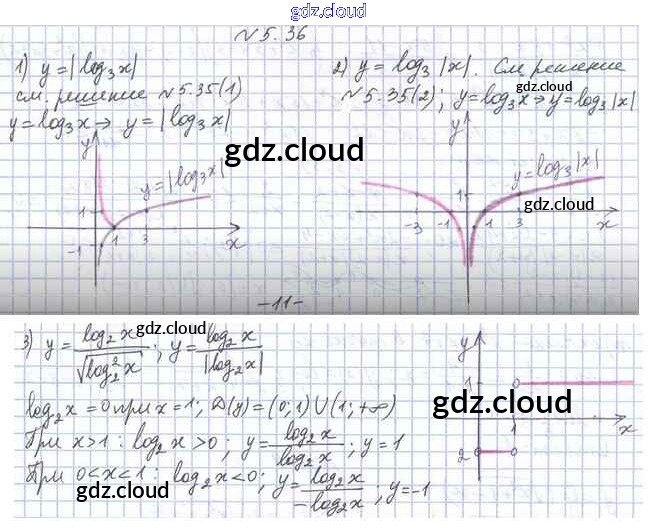 gdz.cloud
№ 5.36
1) y = |log₃x|
см. решение № 5.35(1)
y = log₃x → y = |log₃x|
2) y = log₃|x|. См. решение
№ 5.35(2); y = log₃x → y = log₃|x|
gdz.cloud
y
y = |log₃x|
1
1 3 x
-1
y
y = log₃|x|
gdz.cloud
1
-3 -1 1 3 x
-11-
3) y = log₂x / √(log₂²x); y = log₂x / |log₂x|
gdz.cloud
log₂x = 0 при x = 1; D(y) = (0; 1) ∪ (1; +∞)
При x > 1: log₂x > 0; y = log₂x / log₂x; y = 1
При 0 < x < 1: log₂x < 0; y = log₂x / -log₂x; y = -1
gdz.cloud
gdz.cloud
y
1
gdz.cloud
1 x
2
gdz.cloud